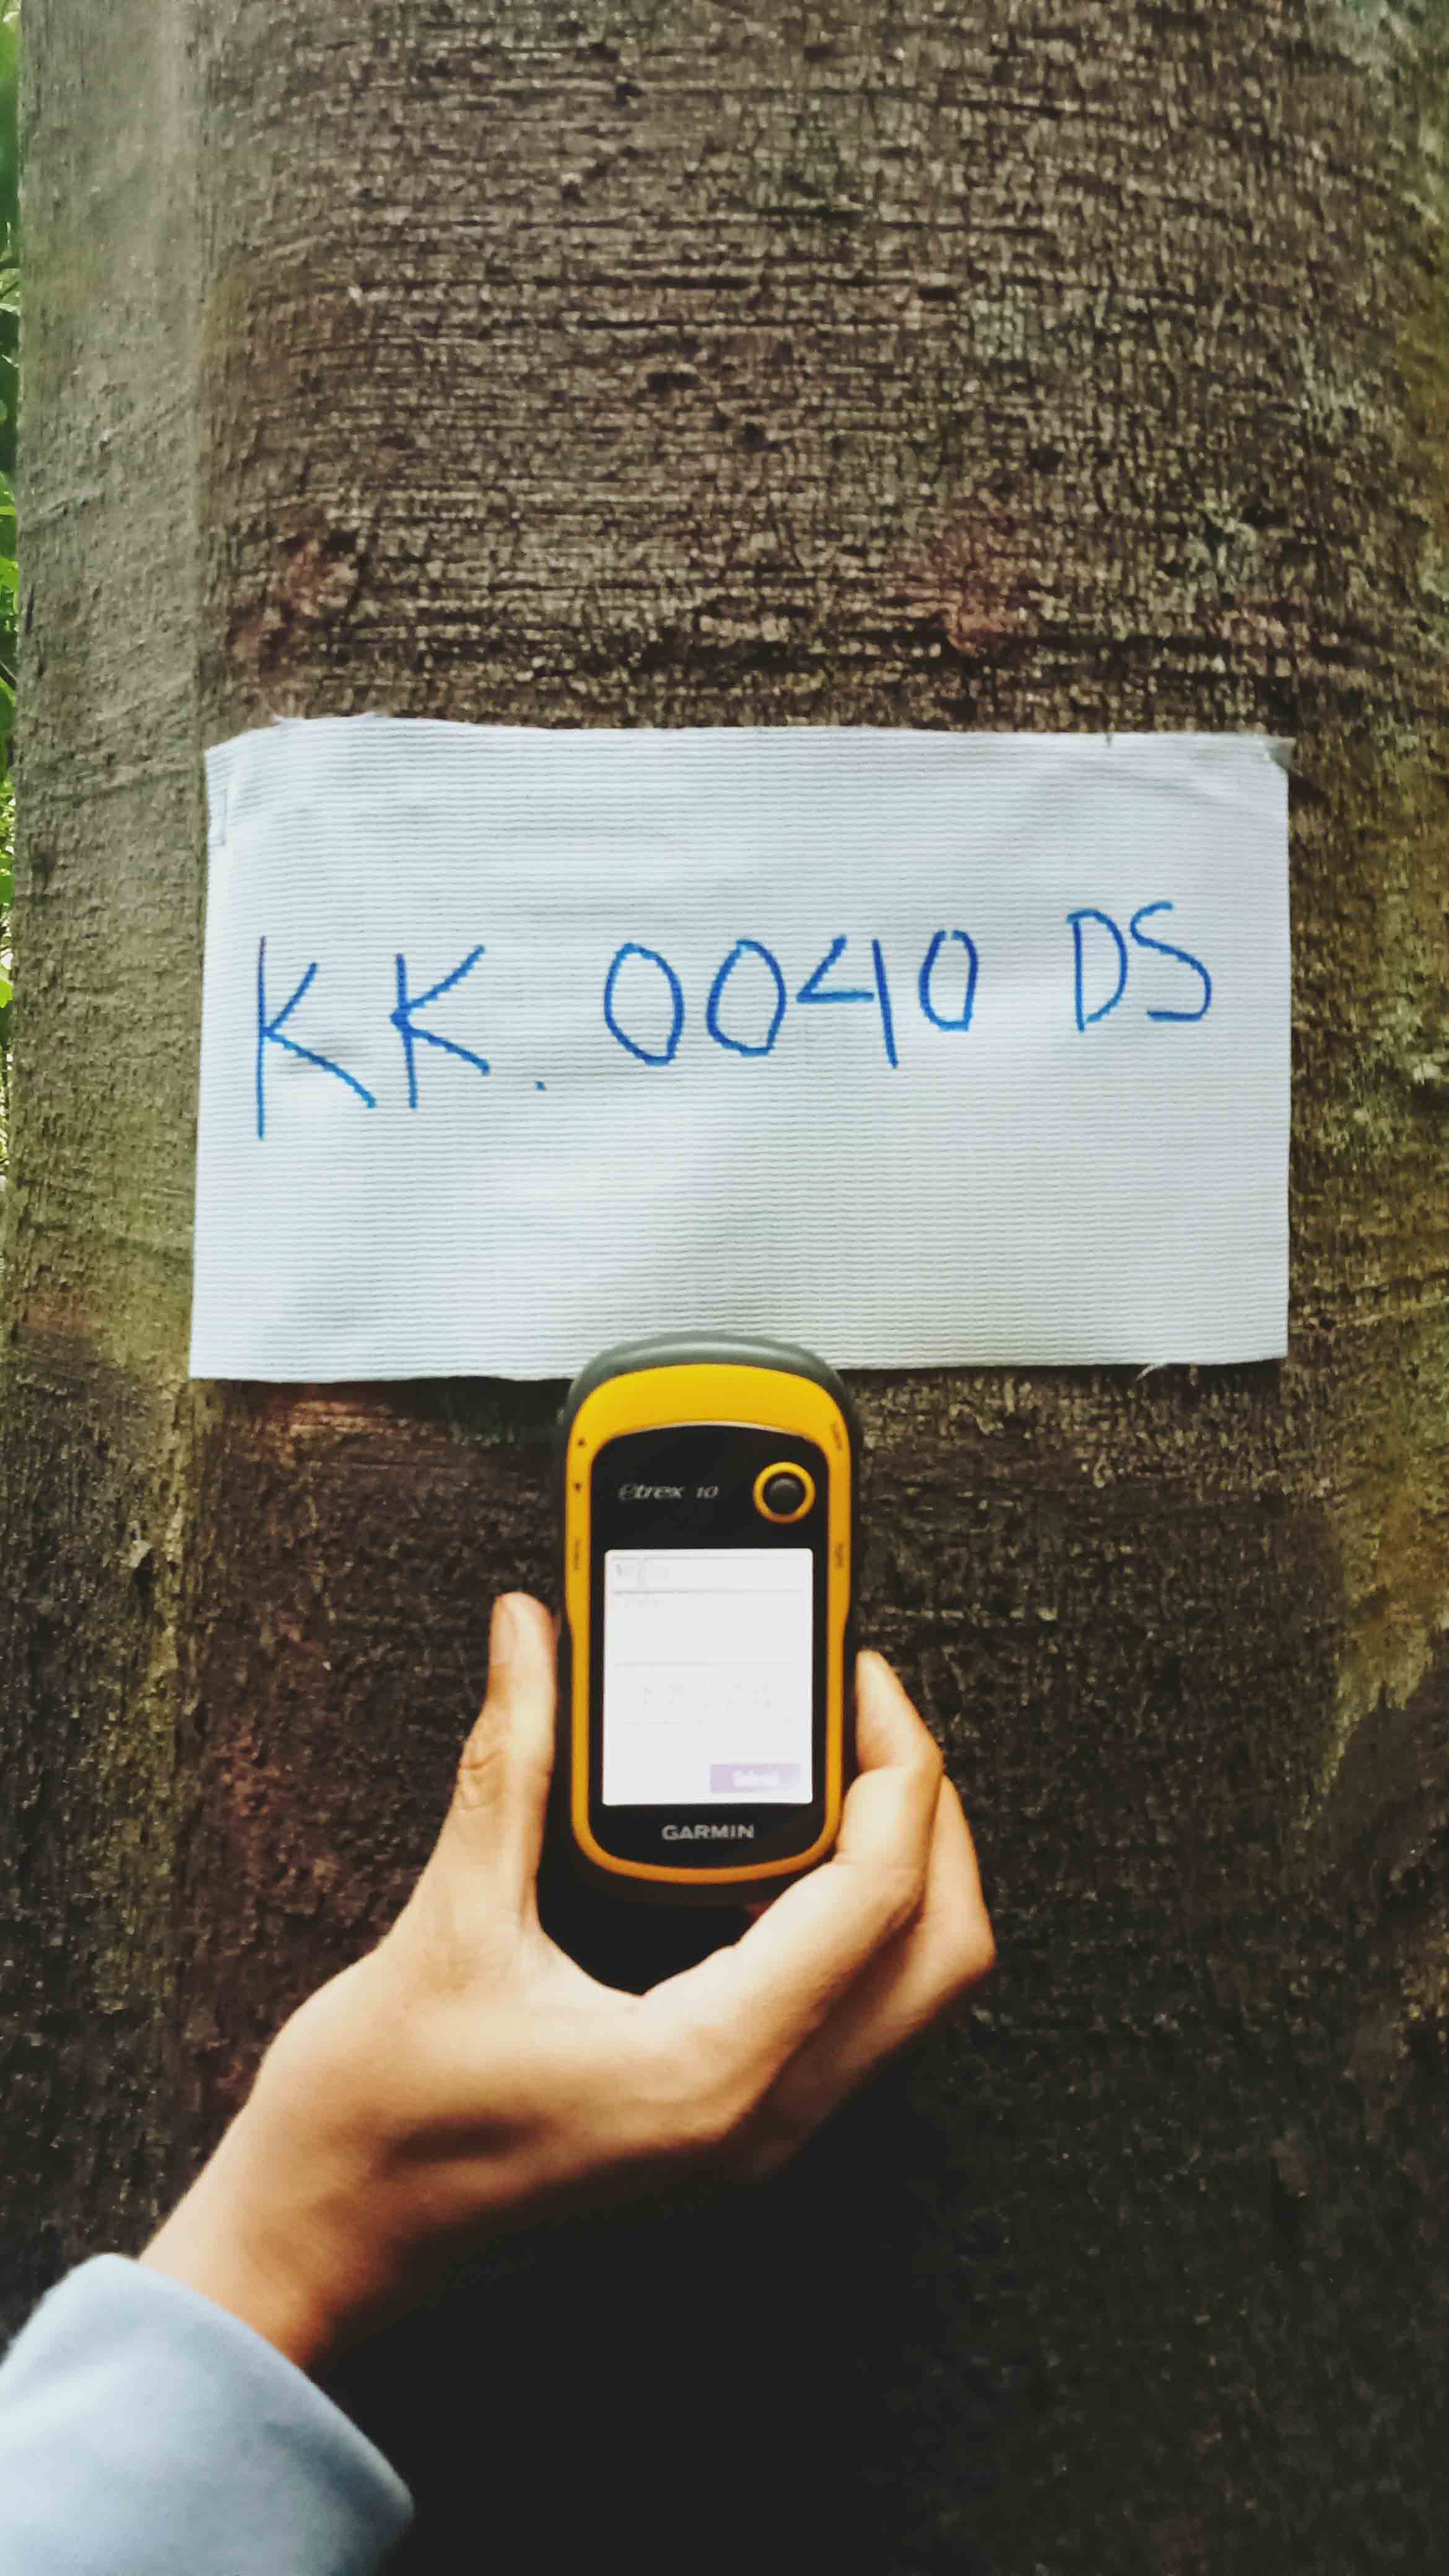 KK. 0040 DS
etrex 10
GARMIN